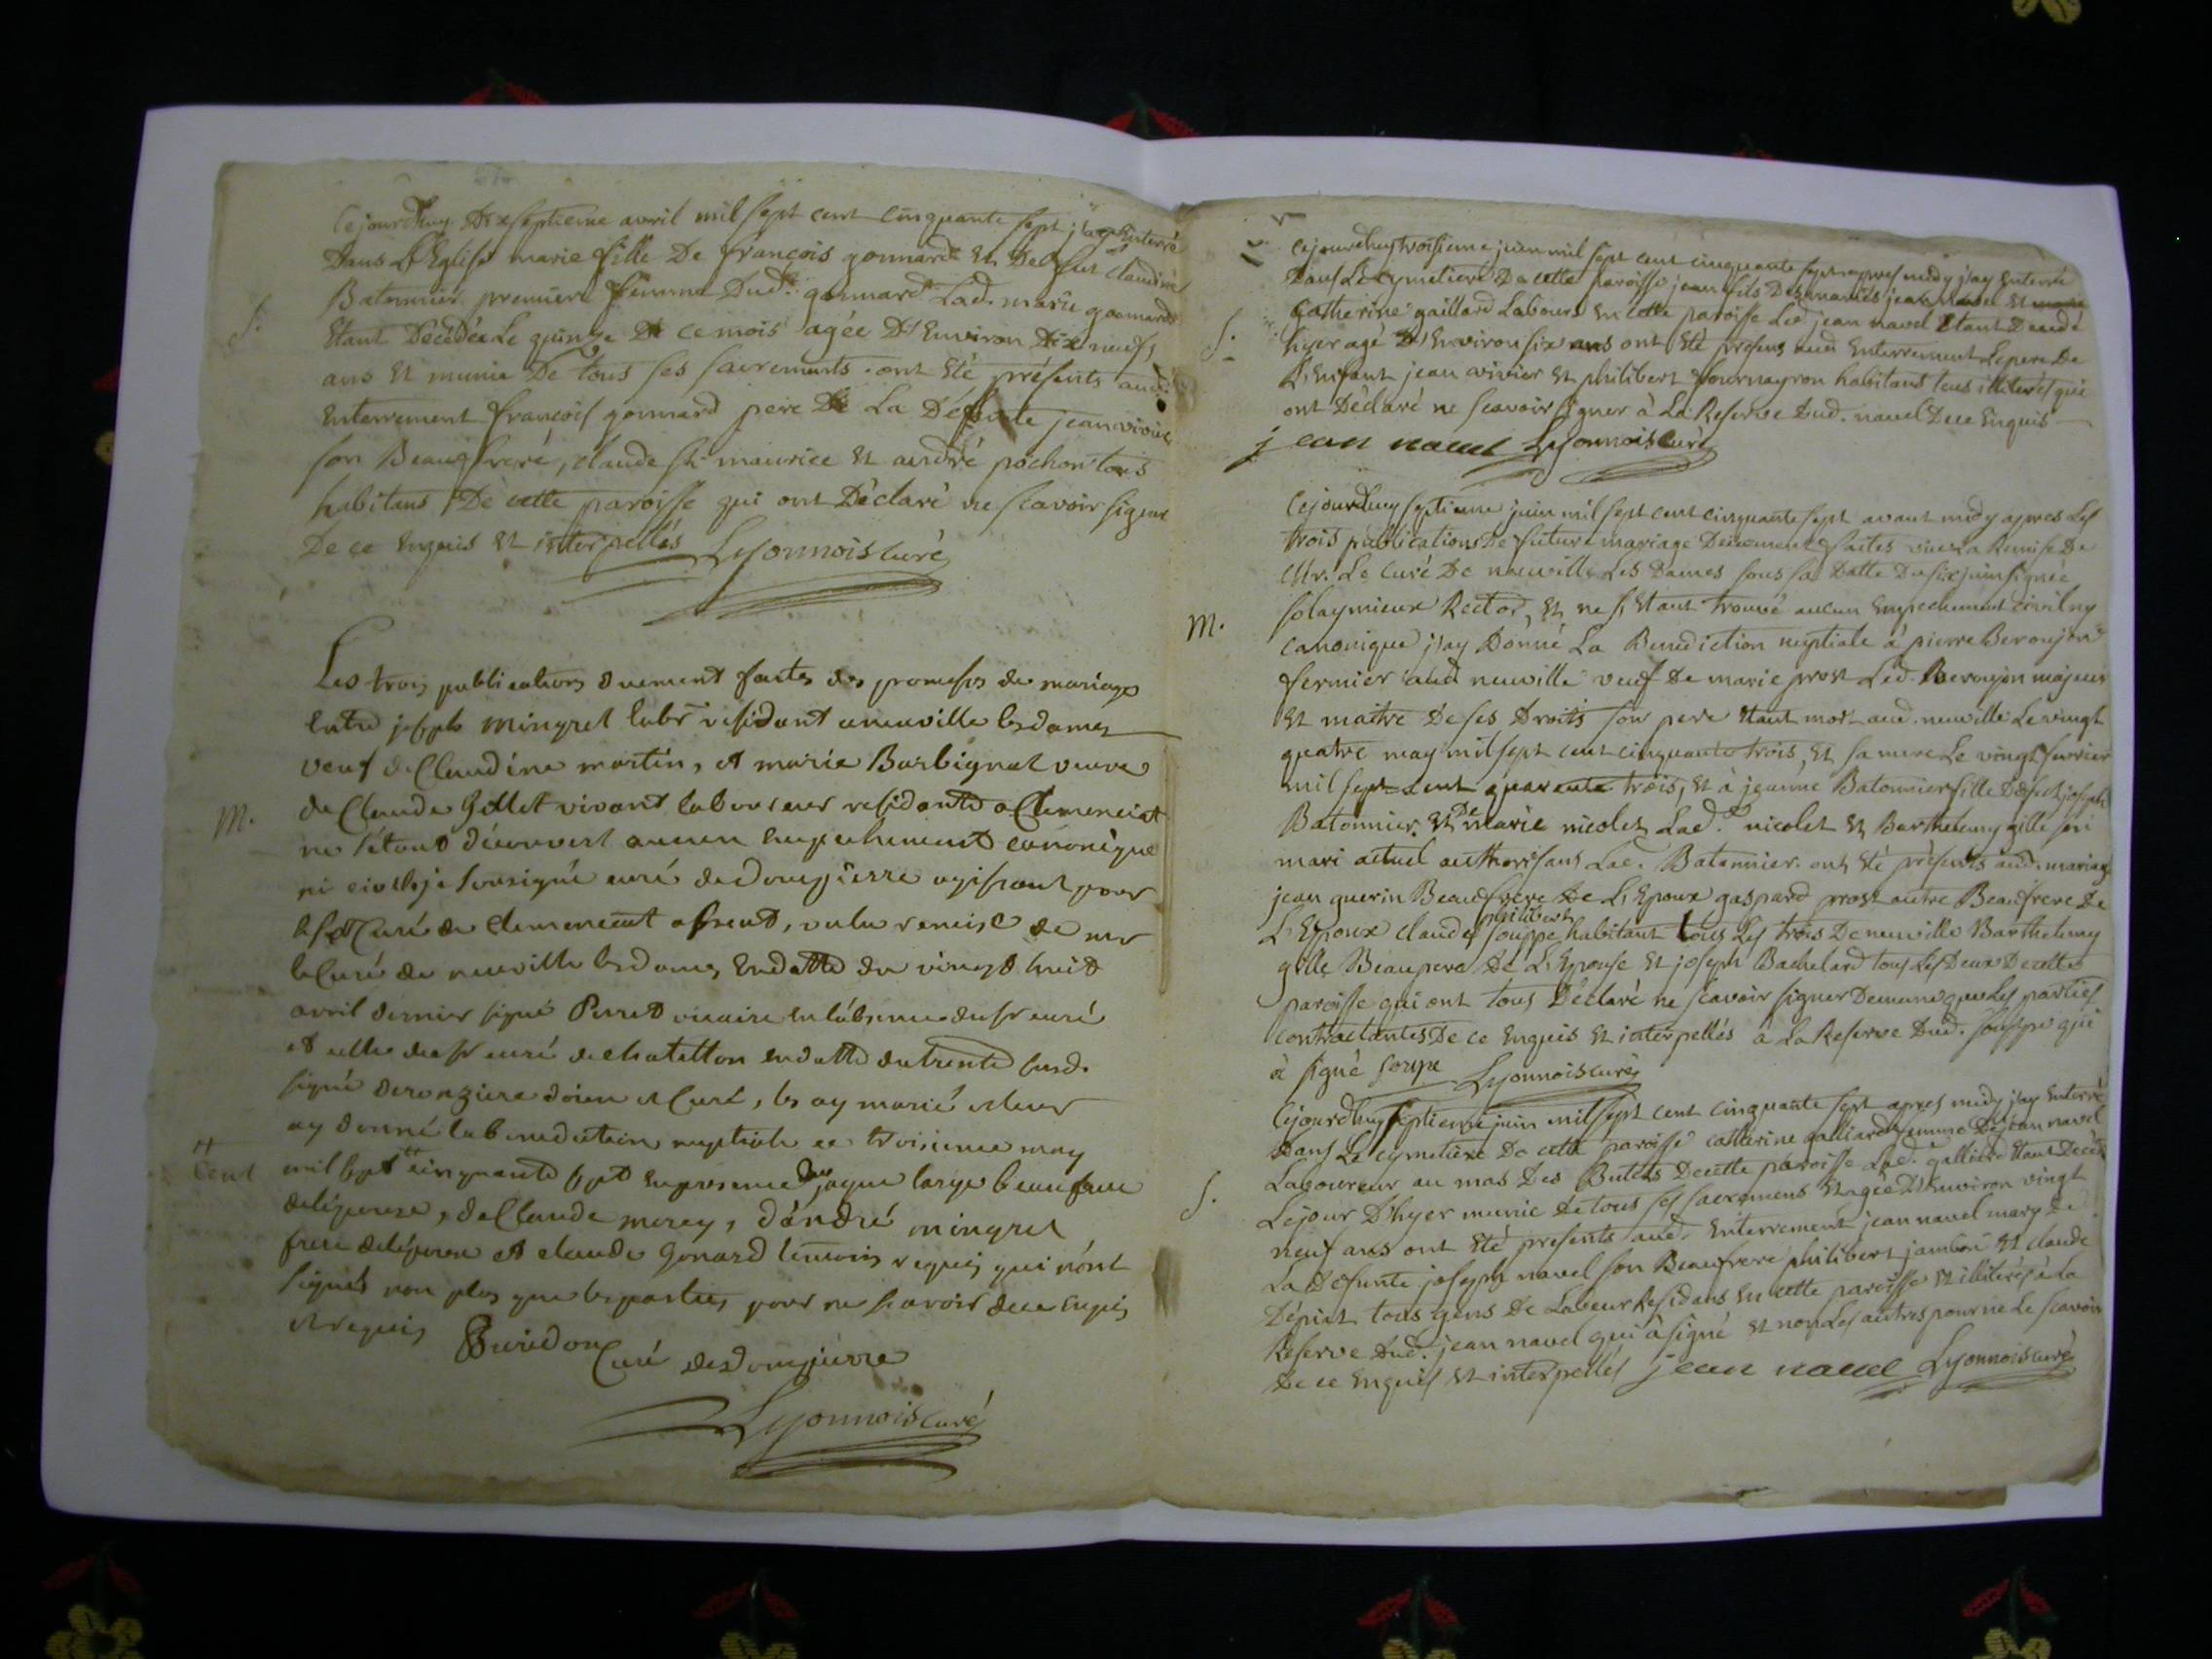 Cejourdhuy Dixseptieme avril mil sept cent cinquante sept j'ay Enterré
Dans L'Eglise marie fille De françois gonnard Et De fut claudine
Batonnier premiere femme Dud. gonnard Lad. marie gonnard
S.
Etant Décédée Le quinze De ce mois agée D'Environ Dix neufs
ans Et munie De tous ses sacrements. ont Eté présents aud.
Enterrement françois gonnard pere De La Défunte jean vivier
son Beaufrere, claude St maurice Et andré pochon tous
habitans De cette paroisse qui ont Déclaré ne scavoir signer
De ce Enquis Et interpellés Lyonnois curé
Les trois publications duement faites des promesses de mariage
Entre joseph Mingret labr residant aneuville lesdames
veuf de Claudine martin, et marie Barbignat veuve
M.
de Claude Gillet vivant laboureur residante a Clemenciat
ne s'etant découvert aucun empechement canonique
ni civil je soussigné curé de Dompierre agissant pour
le Sr Curé de Clemenciat absent, vula remise de mr
le Curé de neuville lesdames Endatte du vingt huit
avril dernier signé Perret vicaire en l'absence du sr curé
et celle du sr curé de chatillon endatte du trente susd.
signé deronziere doien et Curé, les ay marié et leur
ay donné la benediction nuptiale ce troisieme may
Cent
mil sept cinquante sept en presence de jaque large beaufrere
de l'epouse, de Claude morey, d'andré mingret
frere de l'epoux et claude Gonard temoins requis qui n'ont
signés non plus que les parties pour ne scavoir dece enquis
et requis
Curé de Dompierre
Lyonnois curé
Cejourdhuy troisieme juin mil sept cent cinquante sept apres midy j'ay Enterré
Dans Le Cymetiere De cette paroisse jean fils Des mariés jean navel Et
Catherine gaillard Labours En cette paroisse Led. jean navel Etant Decedé
S.
hyer agé D'Environ six ans ont Eté présens aud. Enterrement Le pere De
L'Enfant jean vivier Et philibert fournayron habitans tous illiterés qui
ont Déclaré ne scavoir signer à La Reserve Dud. navel Dece Enquis
jean navel Lyonnois curé
Cejourdhuy septieme juin mil sept cent cinquante sept avant midy apres Les
trois publications De futur mariage Deuement faites vu La Remise De
Mr. Le Curé De neuville Les Dames sous sa Datte Du six juin signée
solaymieux Rector, Et ne s'Etant trouvé aucun Empechement Civil ny
M.
canonique j'ay Donné La Benediction nuptiale à pierre Beroujon
fermier aud neuville veuf De marie prost Led. Beroujon majeur
Et maitre De ses Droits son pere Etant mort aud. neuville Le vingt
quatre may mil sept cent cinquante trois, Et sa mere Le vingt fevrier
mil sept cent quarente trois, Et à jeanne Batonnier fille De feu joseph
Batonnier Et De marie nicolet Lad. nicolet Et Barthelemy gille son
mari actuel authorisans Lad. Batonnier. ont Eté présents aud. mariage
jean guerin Beaufrere De L'Epoux gaspard prost autre Beaufrere De
L'Epoux claude philibert souppe habitant tous Les trois De neuville Barthelemy
gille Beaupere De L'Epouse Et joseph Bachelard tous Les Deux De cette
paroisse qui ont tous Déclaré ne scavoir signer Dememe que Les parties
contractantes De ce Enquis Et interpellés à La Reserve Dud. souppe qui
à signé soupe Lyonnois curé
Cejourdhuy septieme juin mil sept cent cinquante sept apres midy j'ay Enterré
Dans Le cymetiere De cette paroisse catherine galliard femme De jean navel
Laboureur au mas Des Butets De cette paroisse Lad. galliard Etant Decedée
S.
Le jour D'hyer munie De tous ses sacremens Et agée D'Environ vingt
neuf ans ont Eté presents aud. Enterrement jean navel mary De
La Defunte joseph navel son Beaufrere philibert jambon Et claude
Dépint tous gens De Labeur Residans En cette paroisse Et illiterés à La
Reserve Dud. jean navel qui à signé Et non Les autres pour ne Le scavoir
De ce Enquis Et interpellés jean navel Lyonnois curé